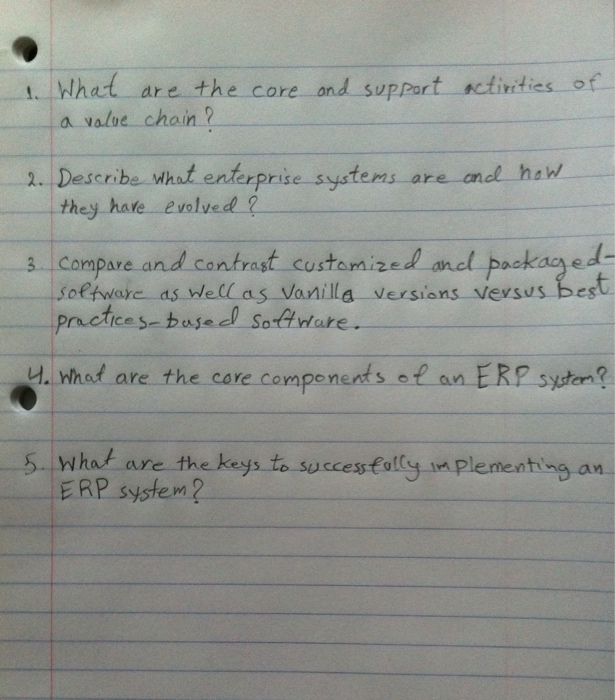 1. What are the core and support activities of
a value chain?
2. Describe what enterprise systems are and how
they have evolved?
3. Compare and contrast customized and packaged-
software as well as vanilla versions versus best
practices-based software.
4. What are the core components of an ERP system?
5. What are the keys to successfully implementing an
ERP system?